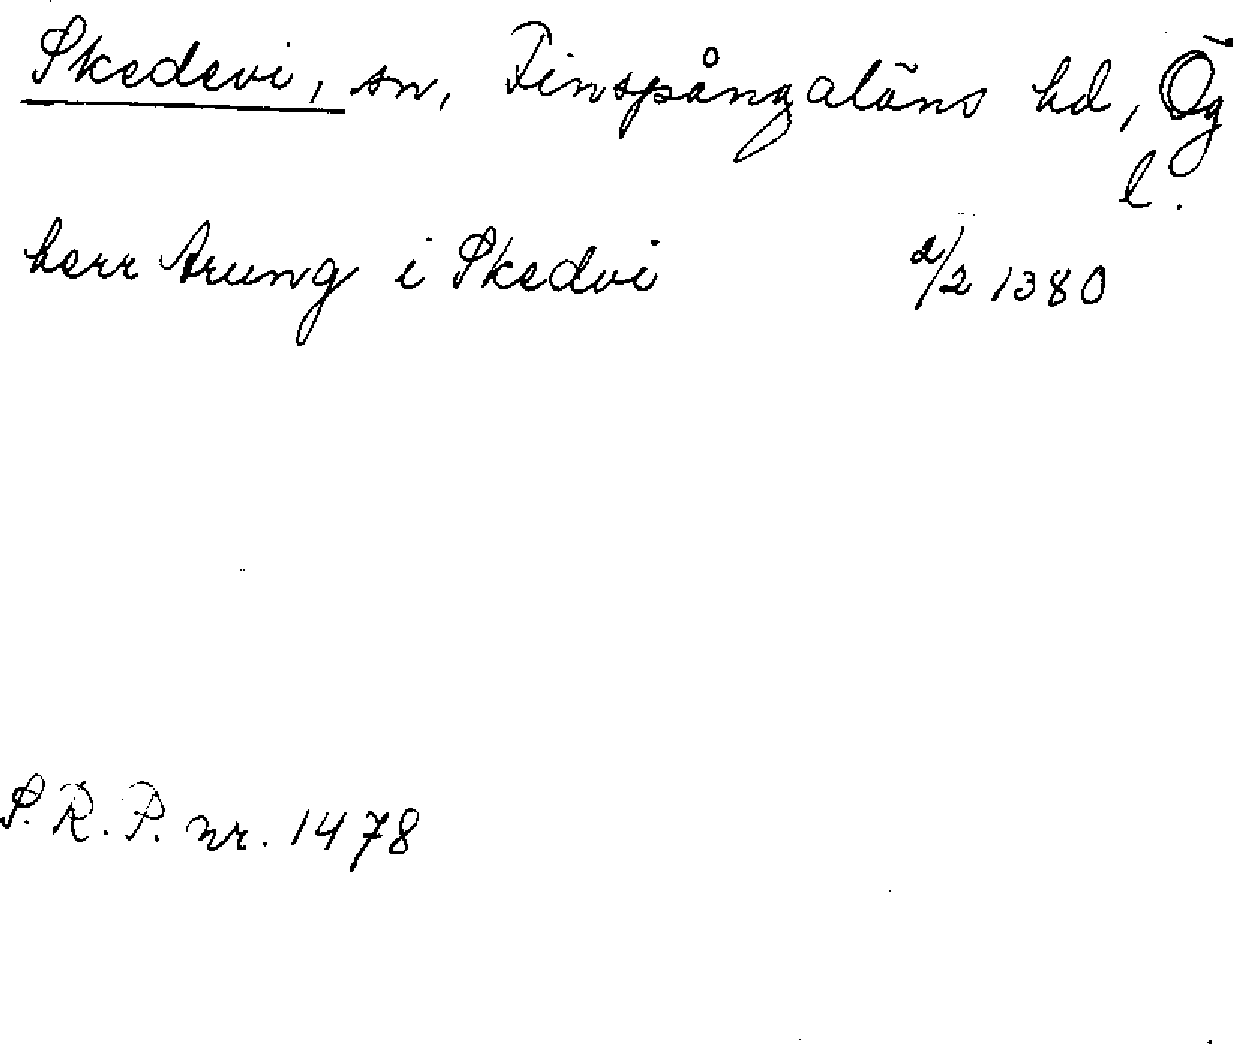 Skedevi, sn, Finspångaläns hd, Ög
l.
herr Arung i Skedvi 2/2 1380
S.R.P. nr. 1478